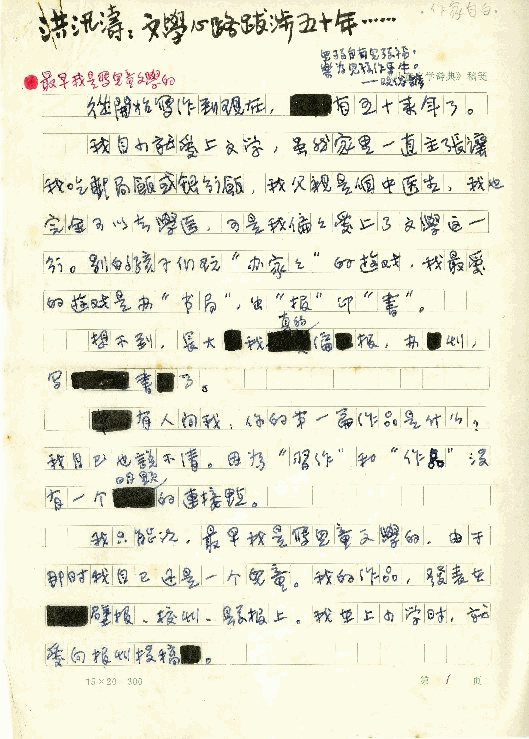 作家自白
洪汛濤：文學心路跋涉五十年……
學辞典》稿箋
最早我是寫兒童文學的
從開始寫作到現在，有五十来年了。
我自小就愛上文学，虽然家里一直主張讓
我吃郵局飯或銀行飯，我父親是個中医生，我也
完全可以去學医，可是我偏偏愛上了文學這一
行。别的孩子们玩“办家家”的遊戏，我最愛
的遊戏是办“书局”，出“报”印“書”。
想不到，長大我真的编报，办刊，
写書了。
有人问我，你的第一篇作品是什么？
我自己也說不清。因为“習作”和“作品”沒
有一个明顯的連接點。
我只能说，最早我是寫兒童文學的，由于
那时我自己还是一个兒童。我的作品，發表在
壁报、校刊、縣报上。我在上小学时，就
愛向报刊投稿。
15×20=300
第 1 頁